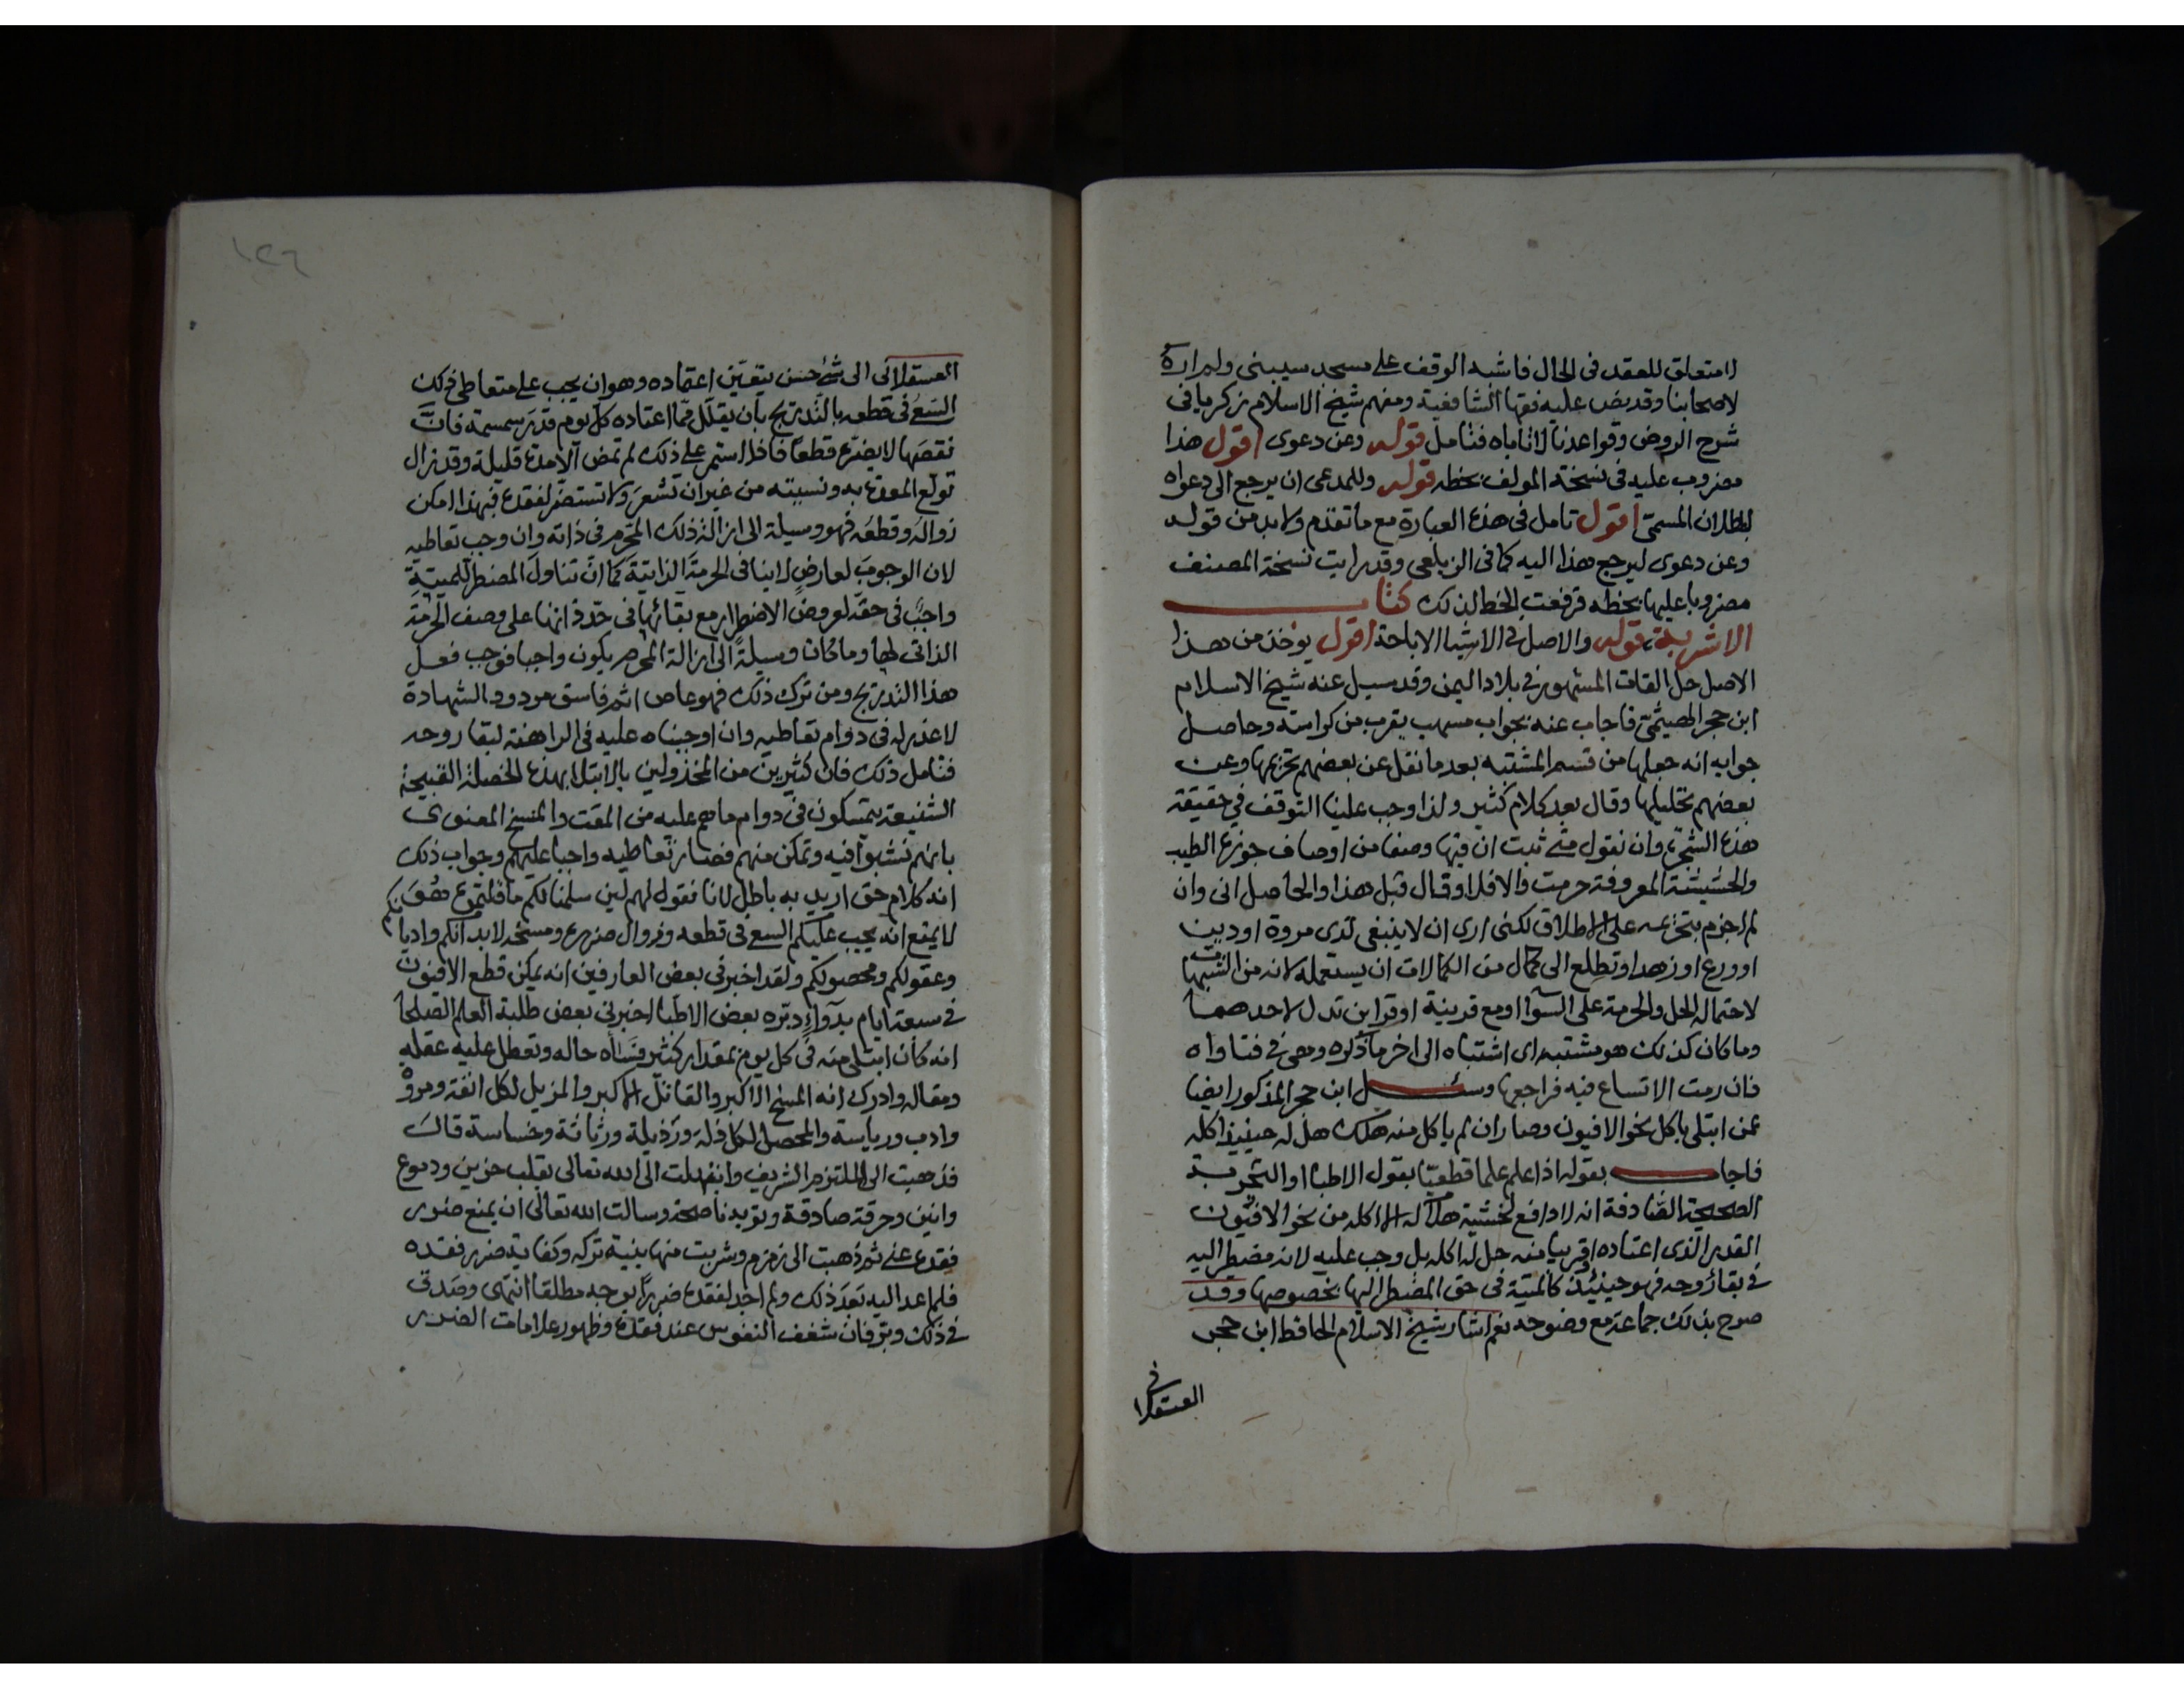 لا متعلق للعقد في الحال فاشبه الوقف على مسجد سيبنى ولم اره
لاصحابنا وقد نص عليه فقها الشافعية ومنهم شيخ الاسلام زكريا في
شرح الروض وقواعدنا لا تاباه فتامل قوله وعن دعوى اقول هذا
مضروب عليه في نسخة المولف بخطه قوله وللمدعى ان يرجع الى دعواه
لبطلان المسمى اقول تامل في هذه العبارة مع ما تقدم ولا بد من قوله
وعن دعوى ليرجع هذا اليه كما في الزيلعي وقد رايت نسخة المصنف
مضروبا عليها بخطه فرفعت الخط لذلك كتاب
الاشربة قوله والاصل في الاشيا الاباحة اقول يوخذ من هذا
الاصل حل القات المشهور في بلاد اليمن وقد سيل عنه شيخ الاسلام
ابن حجر الهيثمي فاجاب عنه بجواب مسهب يقرب من كراسته وحاصل
جوابه انه جعلها من قسم المشتبه بعد ما نقل عن بعضهم تحريمها وعن
بعضهم تحليلها وقال بعد كلام كثير ولذا وجب علينا التوقف في حقيقة
هذه الشجرة وان نقول متى ثبت ان فيها وصفا من اوصاف جوزة الطيب
والحشيشة المعروفة حرمت والا فلا وقال قبل هذا والحاصل انى وان
لم اجزم بتحريمه على الاطلاق لكنى ارى ان لا ينبغى لذى مروة او دين
او ورع او زهد او تطلع الى كمال من الكمالات ان يستعمله لانه من الشبهات
لاحتماله الحل والحرمة على السوا او مع قرينة او قراين تدل لاحدهما
وما كان كذلك هو مشتبه اى اشتباه الى اخر ما ذكره وهى في فتاواه
فان رمت الاتساع فيه فراجعها وسئل ابن حجر المذكور ايضا
عمن ابتلى باكل نحو الافيون وصار ان لم ياكل منه هلك هل له حينيذ اكله
فاجاب بقوله اذا علم علما قطعيا بقول الاطبا او التجربة
الصحيحة الصادقة انه لا دافع لخشية هلاكه الا اكله من نحو الافيون
القدر الذى اعتاده او قريبا منه حل له اكله بل وجب عليه لانه مضطر اليه
في بقا روحه فهو حينئذ كالميتة في حق المضطر اليها بخصوصها وقد
صرح بذلك جماعة مع وضوحه نعم اشار شيخ الاسلام الحافظ ابن حجر
العسقلانى
١٢٦
العسقلانى الى شئ حسن يتعين اعتماده وهو ان يجب على متعاطى ذلك
السعى في قطعه بالتدريج بان يقلل مما اعتاده كل يوم قدر سمسمة فان
نقصها لا يضره قطعا فاذا استمر على ذلك لم تمض الا مدة قليلة وقد زال
تولع المعدة به ونسيته من غير ان تشعر ولا تستضر لفقده فبهذا امكن
زواله وقطعه فهو وسيلة الى ازالة ذلك المحرم في ذاته وان وجب تعاطيه
لان الوجوب لعارض لا ينافى الحرمة الذاتية كما ان تناول المضطر للميتة
واجب في حقه لعروض الاضطرار مع بقائها في حد ذاتها على وصف الحرمة
الذاتى لها وما كان وسيلة الى ازالة المحرم يكون واجبا فوجب فعل
هذا التدريج ومن ترك ذلك فهو عاص اثم فاسق مردود الشهادة
لا عذر له في دوام تعاطيه وان اوجبناه عليه في الراهنة لبقا روحه
فتامل ذلك فان كثيرين من المخذولين بالابتلا بهذه الخصلة القبيحة
الشنيعة يتمسكون في دوام ما هم عليه من المقت والمسخ المعنوى
بانهم نشبوا فيه وتمكن منهم فصار تعاطيه واجبا عليهم وجواب ذلك
انه كلام حق اريد به باطل لانا نقول لهم لين سلمنا لكم ما قلتموه هو
لا يمنع انه يجب عليكم السعى في قطعه وزوال ضرره ومسخه لابدانكم واديانكم
وعقولكم ومحصولكم ولقد اخبرنى بعض العارفين انه يمكن قطع الافيون
في سبعة ايام بدواء دبره بعض الاطبا اخبرنى بعض طلبة العلم الصلحا
انه كان ابتلى منه في كل يوم بمقدار كثير فساه حاله وتعطل عليه عقله
ومقاله وادرك انه المسخ الاكبر والقاتل الاكبر والمزيل لكل انفة ومروة
وادب ورياسة والمحصل لكل ذلة ورذيلة ورثاثة وخساسة قال
فذهبت الى الملتزم الشريف وابتهلت الى الله تعالى بقلب حزين ودموع
وانين وحرقة صادقة وتوبة ناصحة وسالت الله تعالى ان يمنع ضرر
فقده عنى ثم ذهبت الى زمزم وشربت منها بنية تركه وكفاية ضرر فقده
فلم اعد اليه بعد ذلك ولم اجد لفقده ضررا بوجه مطلقا انتهى وصدق
في ذلك وبر فان شغف النفوس عند فقده وظهور علامات الضرر